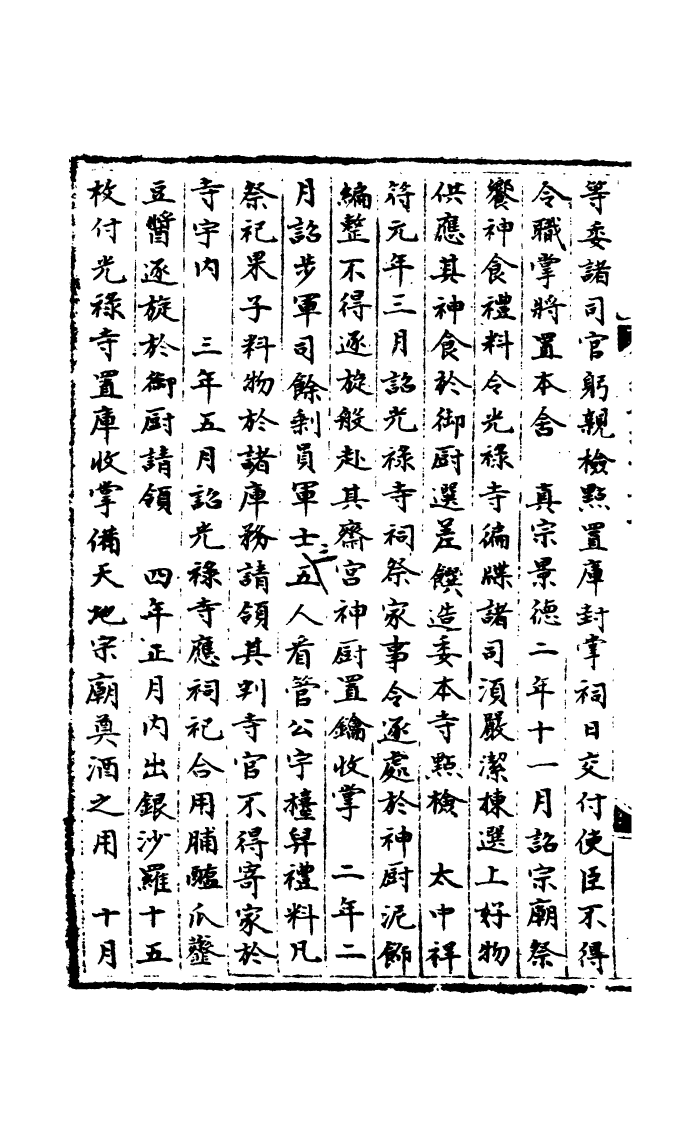 等委諸司官躬親檢點置庫封掌祠日交付使臣不得
令職掌將置本舍　真宗景德二年十一月詔宗廟祭
饗神食禮料令光祿寺徧牒諸司湏嚴潔揀選上好物
供應其神食於御厨選差饌造委本寺點檢　太中祥
符元年三月詔光祿寺祠祭家事令逐處於神厨泥飾
編整不得逐旋般赴其齋宮神厨置鑰收掌　二年二
月詔步軍司餘剩員軍士五三人看管公宇檯舁禮料凡
祭祀果子料物於諸庫務請領其判寺官不得寄家於
寺宇內　三年五月詔光祿寺應祠祀合用脯醢爪虀
豆醬逐旋於御厨請領　四年正月內出銀沙羅十五
枚付光祿寺置庫收掌備天地宗廟奠酒之用　十月